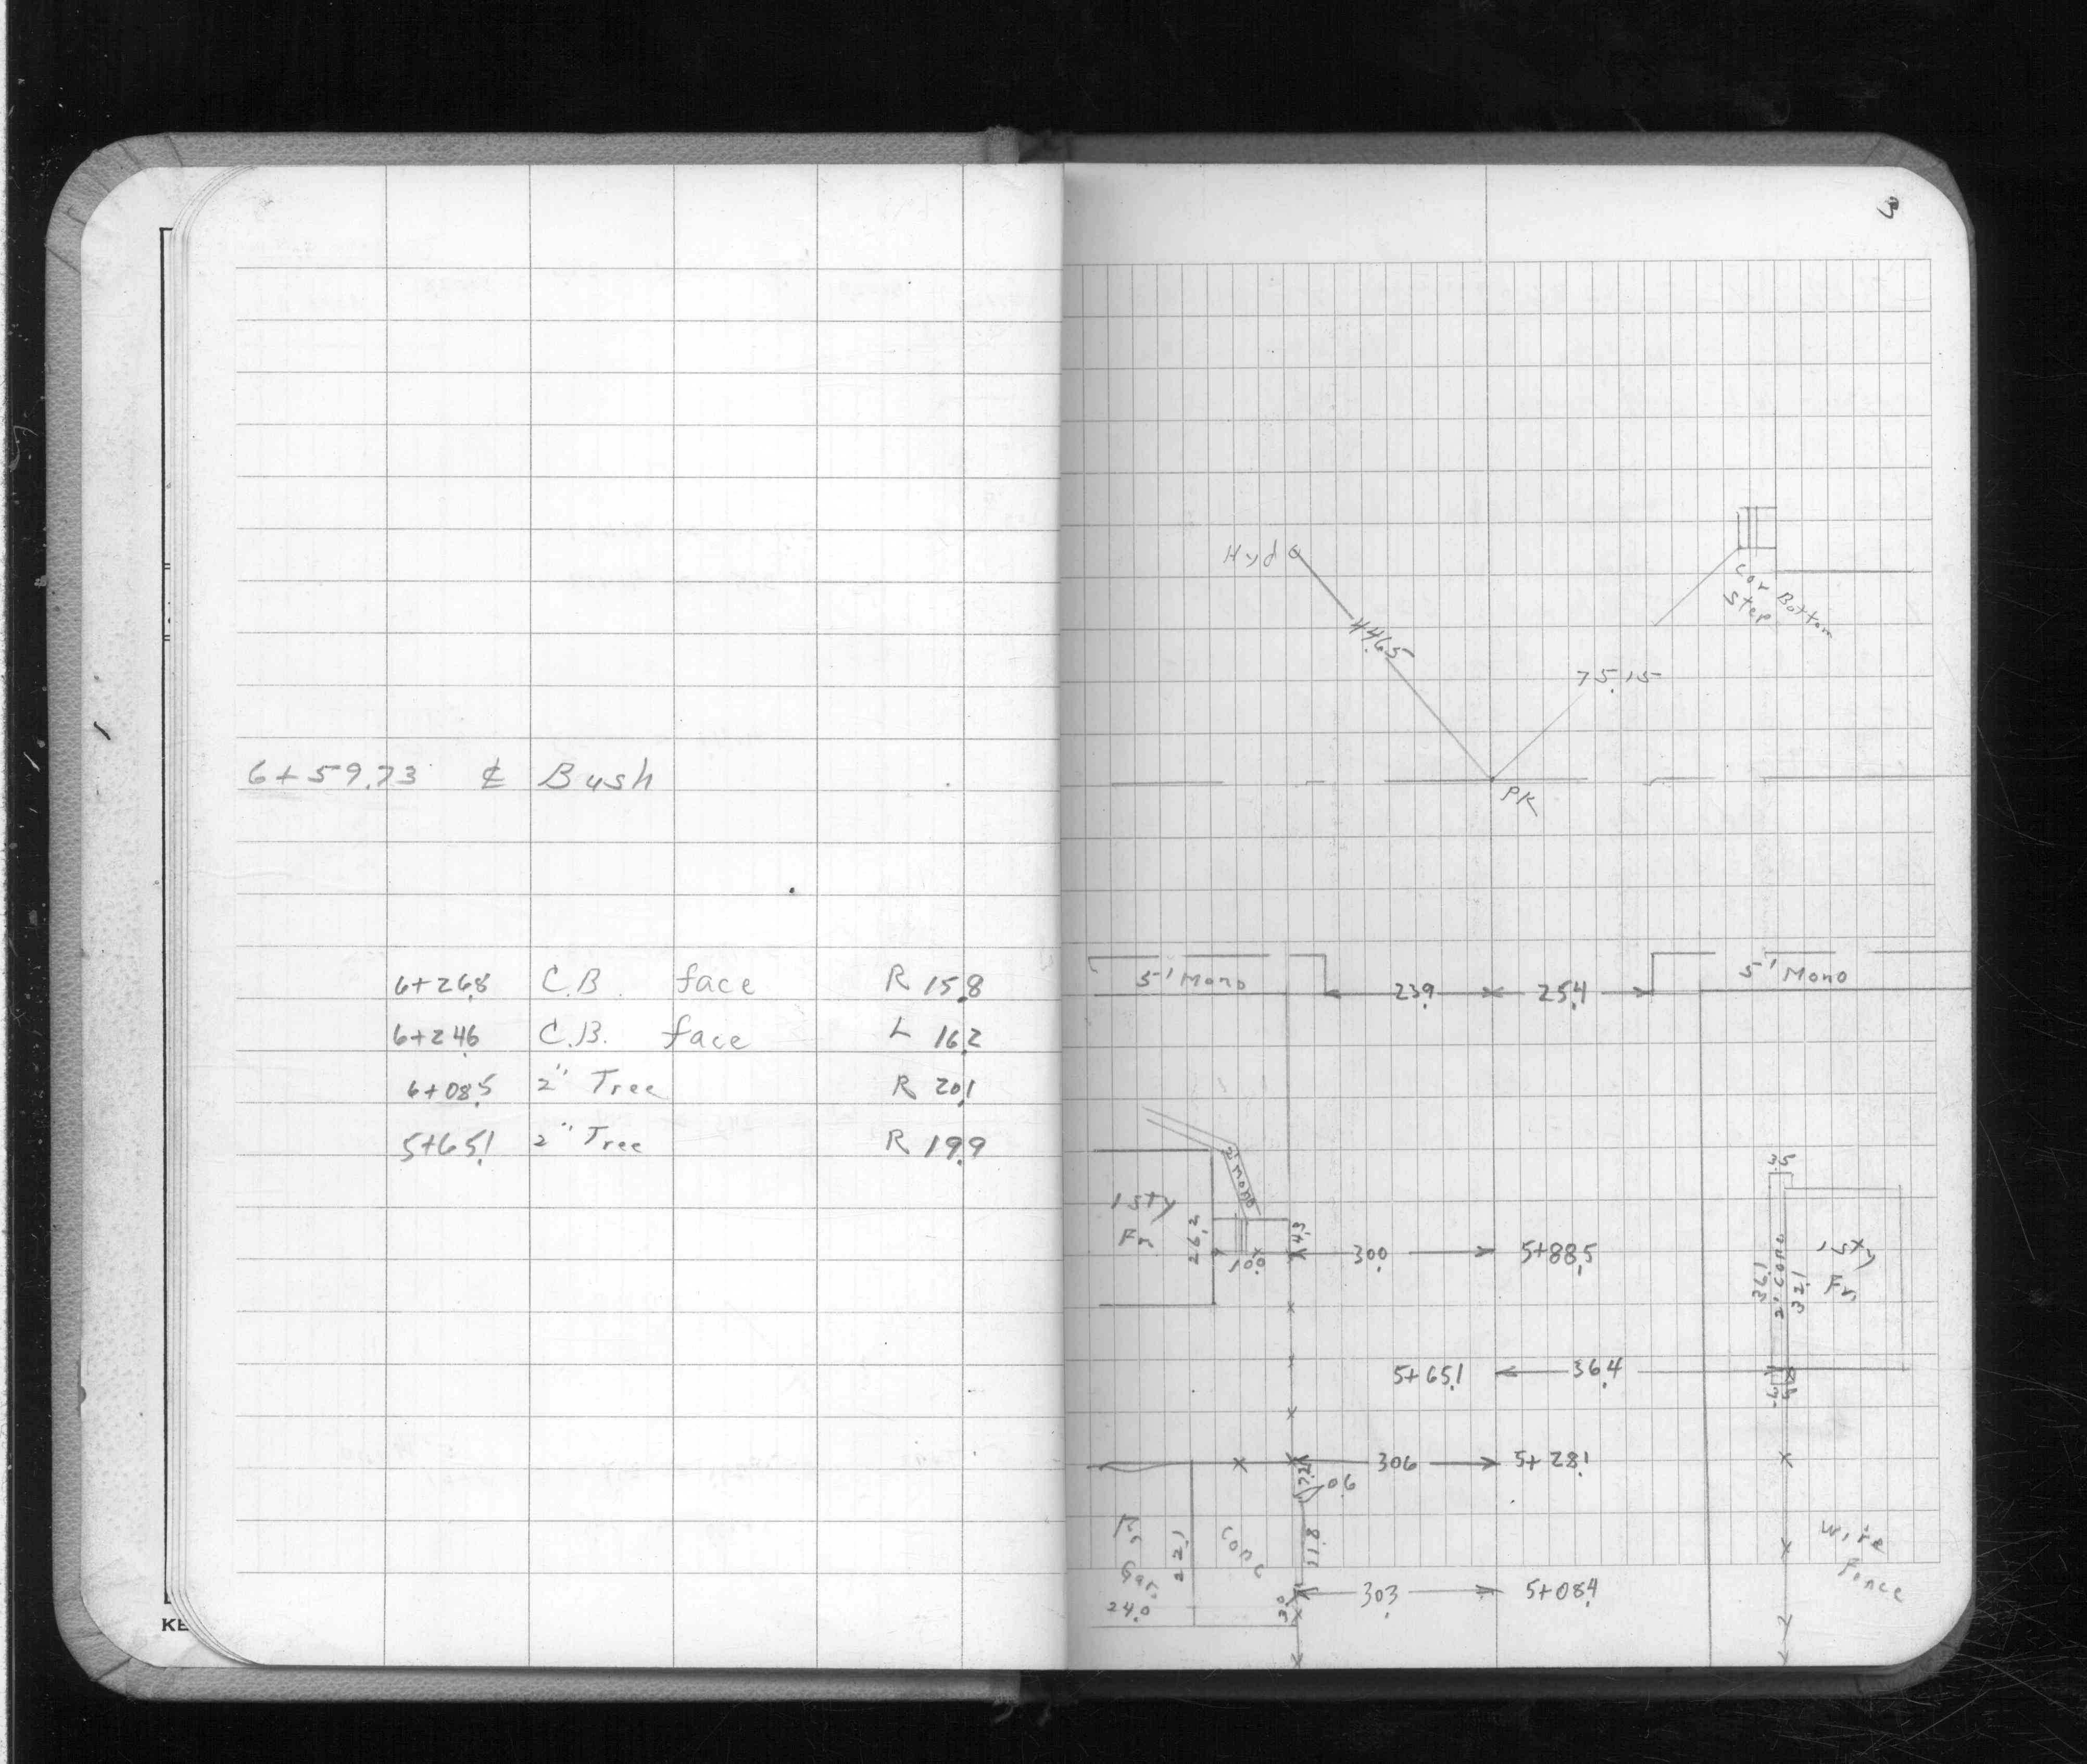 6+59.73 ℄ Bush
6+26.8 C.B. face R 15.8
6+24.6 C.B. face L 16.2
6+08.5 2" Tree R 20.1
5+65.1 2" Tree R 19.9
KE
3
Hyd
44.65
75.15
Cor Bottom
Step
PK
5' Mono
23.9
25.4
5' Mono
2' Mono
1 sty
Fr.
26.2
10.0
4.3
30.0
5+88.5
3.5
36.1
2' Conc
32.1
1 sty
Fr.
5+65.1
36.4
30.6
5+28.1
2.2
0.6
Fr.
Gar.
24.0
22.1
Conc
11.8
3.0
30.3
5+08.4
Wire
Fence